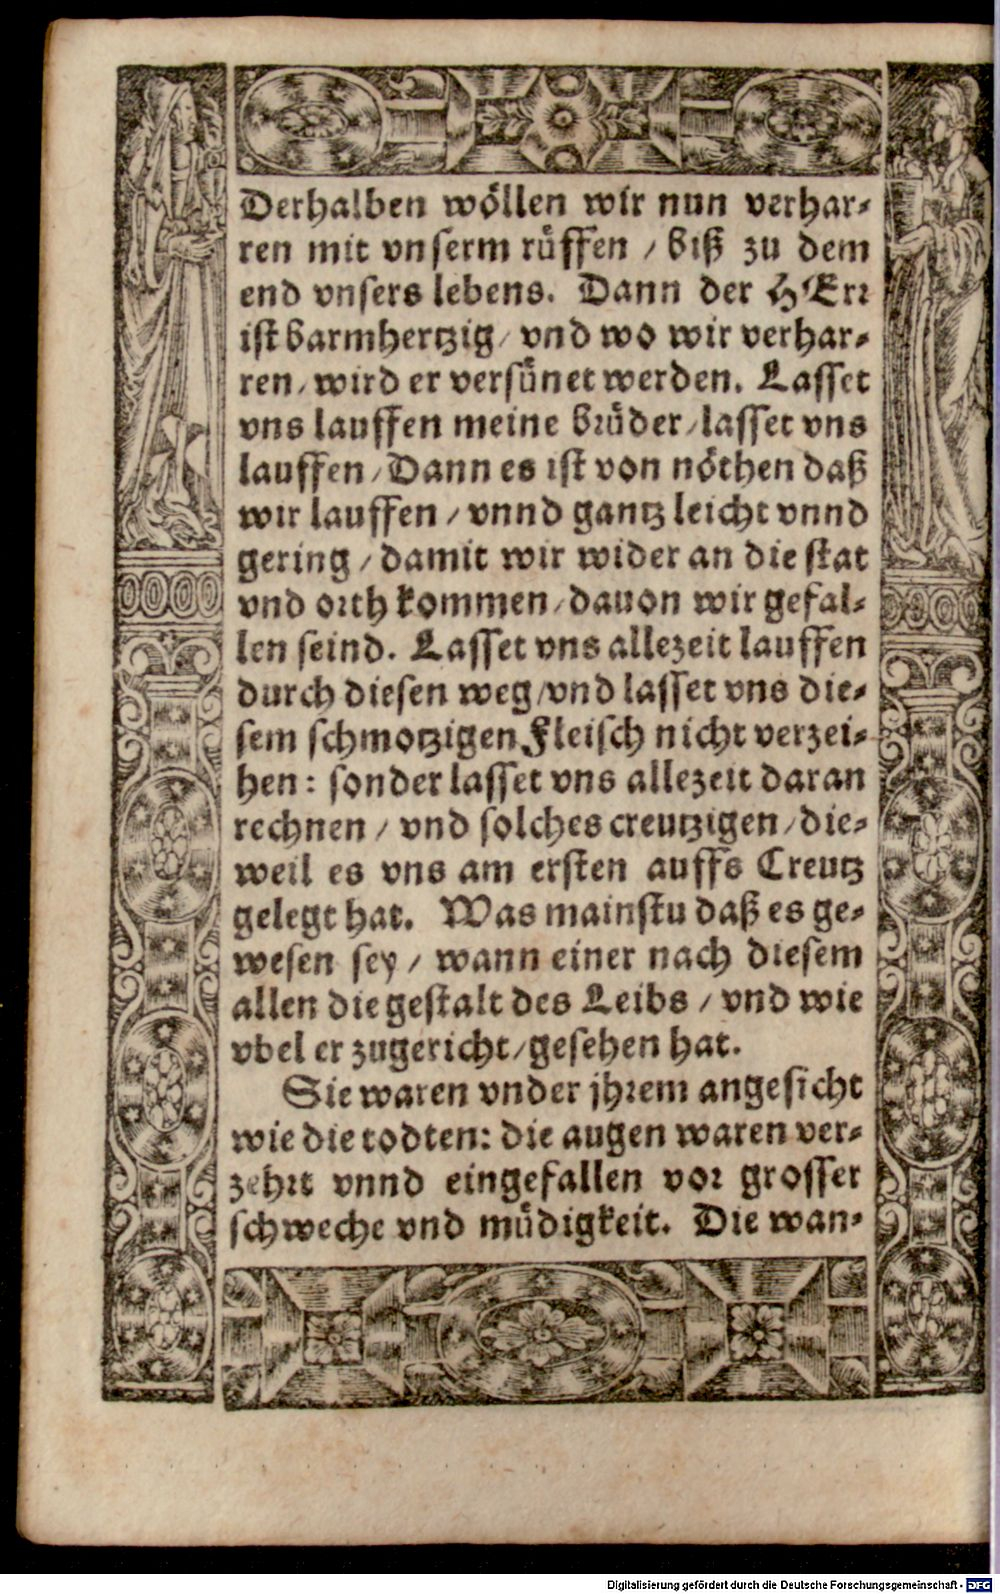 Derhalben wöllen wir nun verhar⸗
ren mit vnserm rüffen / biß zu dem
end vnsers lebens. Dann der HErr
ist barmhertzig/ vnd wo wir verhar⸗
ren/ wird er versünet werden. Lasset
vns lauffen meine brüder/ lasset vns
lauffen/ Dann es ist von nöthen daß
wir lauffen / vnnd gantz leicht vnnd
gering / damit wir wider an die stat
vnd orth kommen/ dauon wir gefal⸗
len seind. Lasset vns allezeit lauffen
durch diesen weg/ vnd lasset vns die⸗
sem schmotzigen Fleisch nicht verzei⸗
hen: sonder lasset vns allezeit daran
rechnen / vnd solches creutzigen/ die⸗
weil es vns am ersten auffs Creutz
gelegt hat. Was mainstu daß es ge⸗
wesen sey / wann einer nach diesem
allen die gestalt des Leibs / vnd wie
vbel er zugericht/ gesehen hat.
Sie waren vnder jhrem angesicht
wie die todten: die augen waren ver⸗
zehrt vnnd eingefallen vor grosser
schweche vnd müdigkeit. Die wan⸗
Digitalisierung gefördert durch die Deutsche Forschungsgemeinschaft - DFG